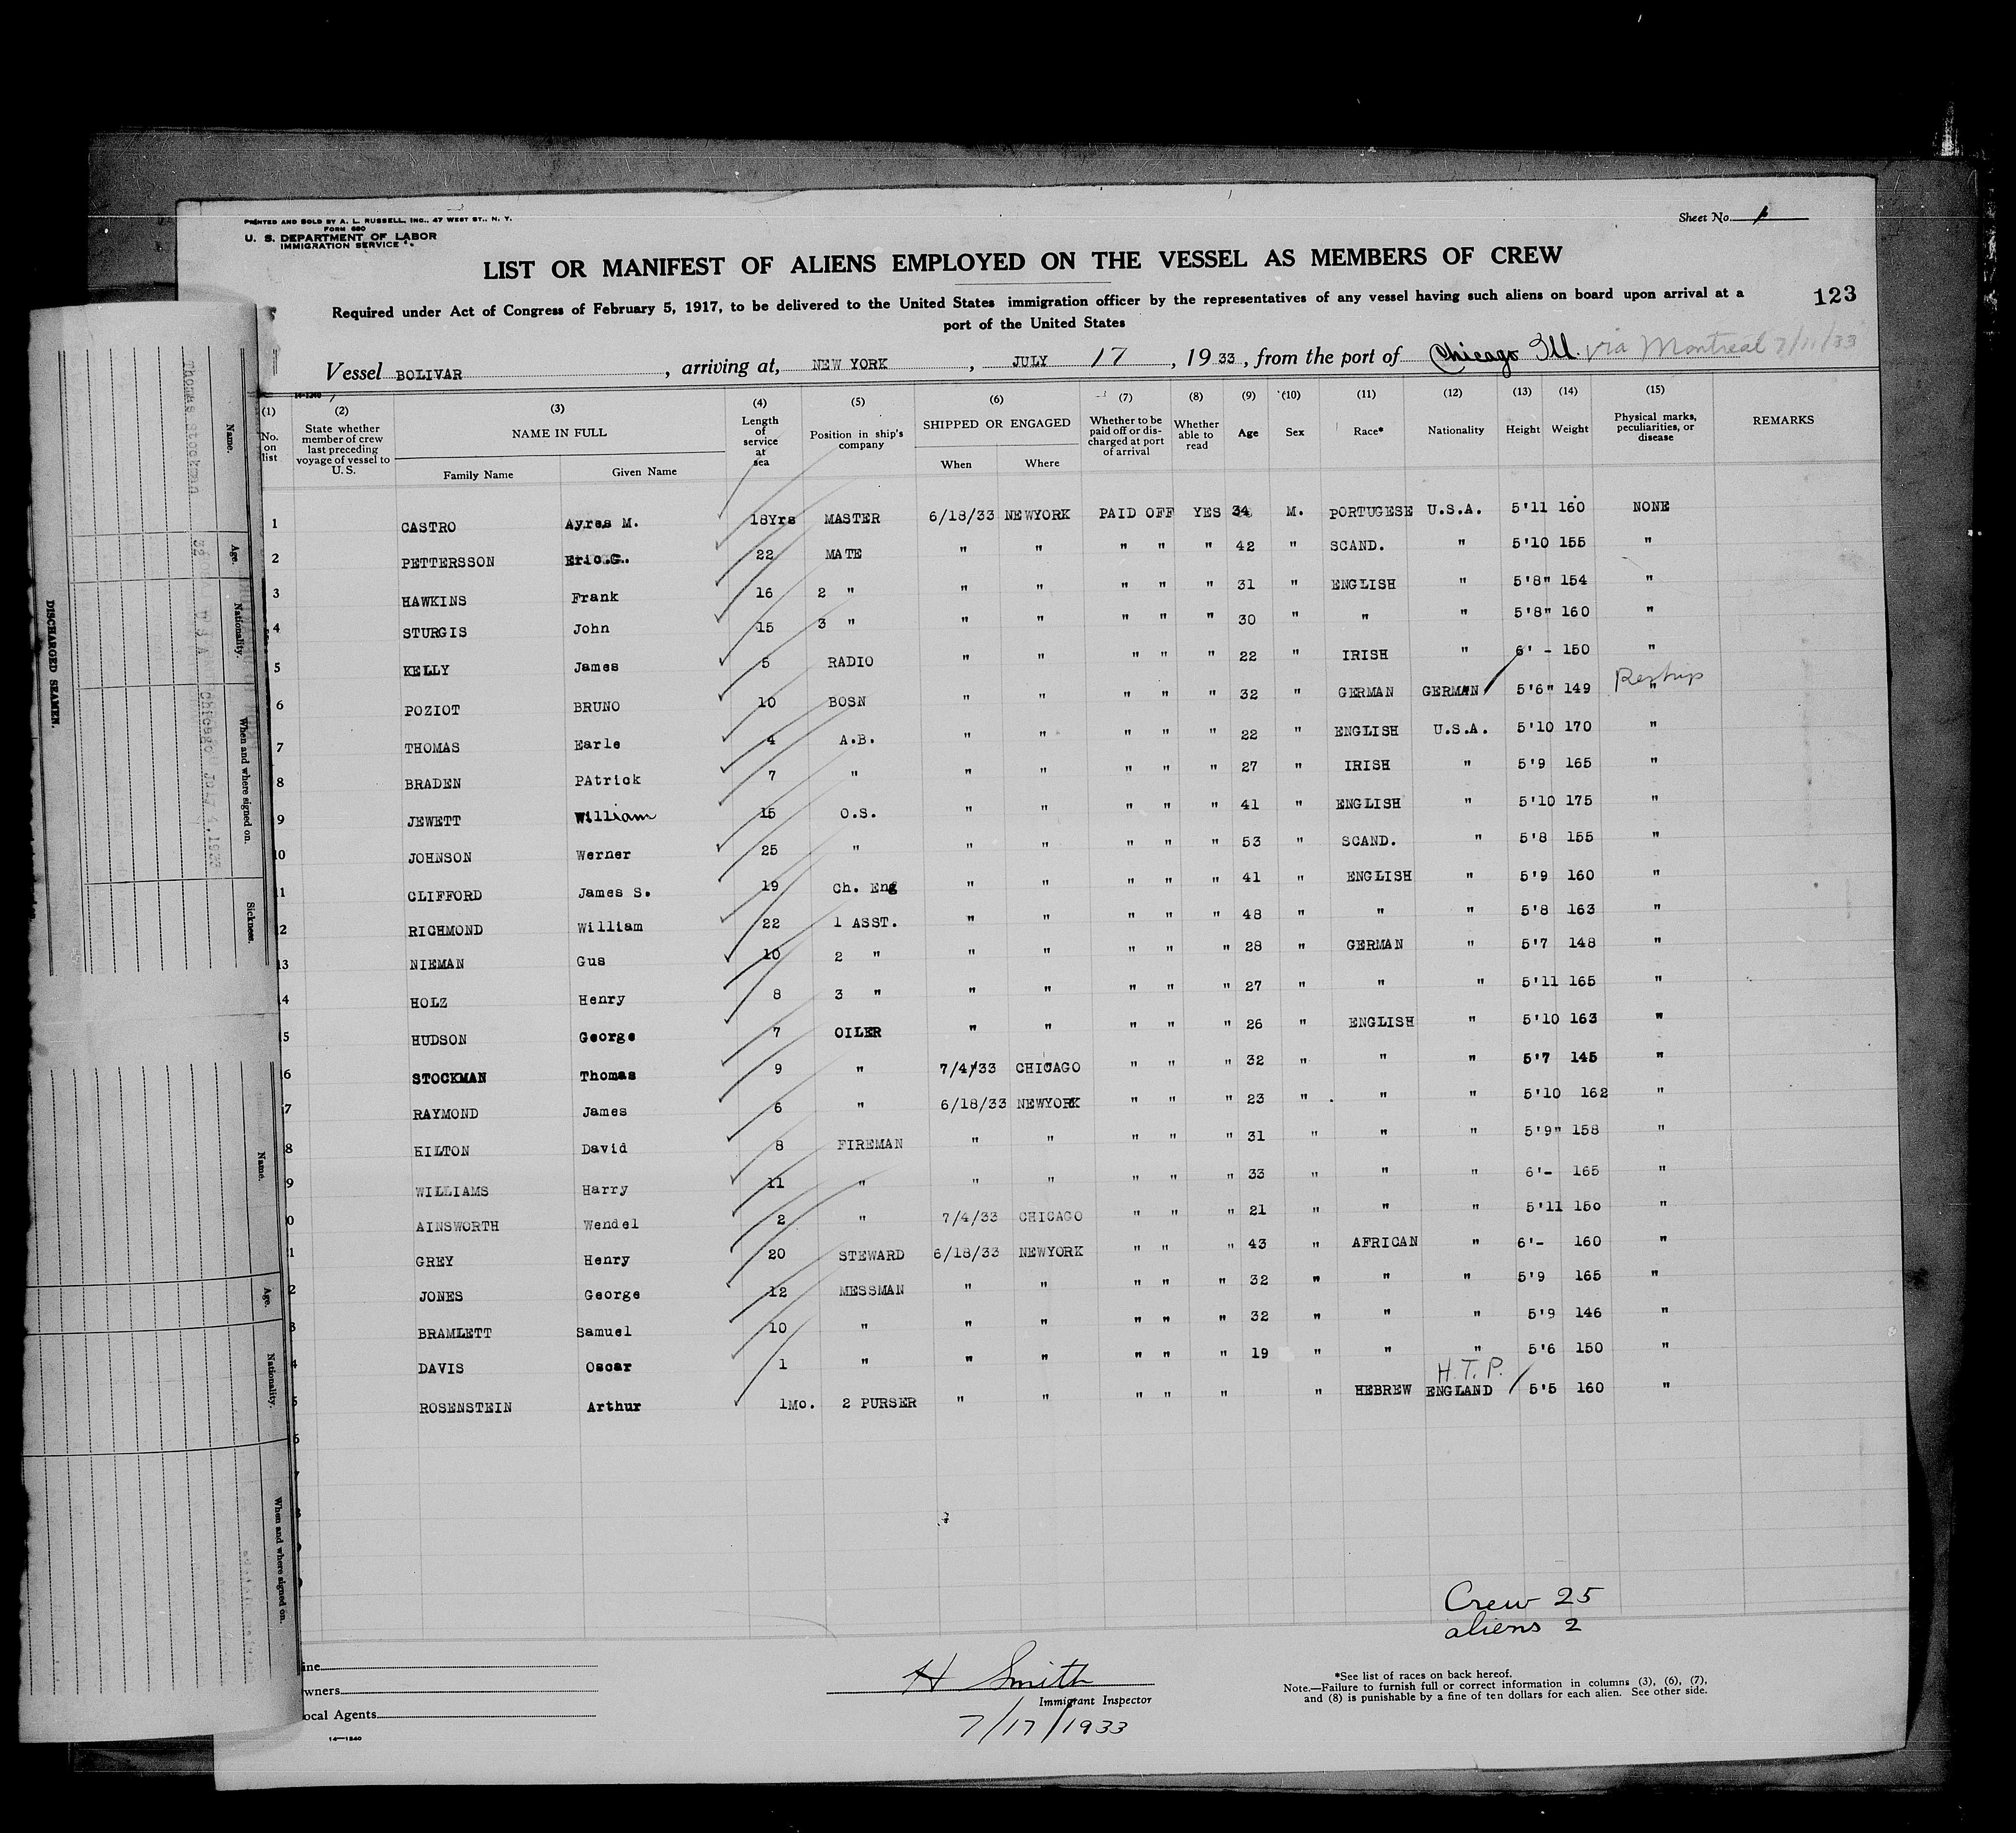 PRINTED AND SOLD BY A. L. RUSSELL, INC., 47 WEST ST., N. Y.
FORM 680
U. S. DEPARTMENT OF LABOR
IMMIGRATION SERVICE
Sheet No. 1
LIST OR MANIFEST OF ALIENS EMPLOYED ON THE VESSEL AS MEMBERS OF CREW
123
Required under Act of Congress of February 5, 1917, to be delivered to the United States immigration officer by the representatives of any vessel having such aliens on board upon arrival at a
port of the United States
Vessel BOLIVAR, arriving at, NEW YORK, JULY 17, 1933, from the port of Chicago Ill. via Montreal 7/11/33
14-1240
(1) (2) (3) (4) (5) (6) (7) (8) (9) (10) (11) (12) (13) (14) (15)
No. on list State whether member of crew last preceding voyage of vessel to U.S. NAME IN FULL Family Name Given Name Length of service at sea Position in ship's company SHIPPED OR ENGAGED When Where Whether to be paid off or discharged at port of arrival Whether able to read Age Sex Race* Nationality Height Weight Physical marks, peculiarities, or disease REMARKS
1 CASTRO Ayres M. 18Yrs MASTER 6/18/33 NEWYORK PAID OFF YES 34 M. PORTUGESE U.S.A. 5'11 160 NONE
2 PETTERSSON Eric.G. 22 MATE " " " " " 42 " SCAND. " 5'10 155 "
3 HAWKINS Frank 16 2 " " " " " " 31 " ENGLISH " 5'8" 154 "
4 STURGIS John 15 3 " " " " " " 30 " " " 5'8" 160 "
5 KELLY James 5 RADIO " " " " " 22 " IRISH " 6' - 150 "
6 POZIOT BRUNO 10 BOSN " " " " " 32 " GERMAN GERMAN 5'6" 149 " Reship
7 THOMAS Earle 4 A.B. " " " " " 22 " ENGLISH U.S.A. 5'10 170 "
8 BRADEN PAtrick 7 " " " " " " 27 " IRISH " 5'9 165 "
9 JEWETT William 15 O.S. " " " " " 41 " ENGLISH " 5'10 175 "
10 JOHNSON Werner 25 " " " " " " 53 " SCAND. " 5'8 155 "
1 CLIFFORD James S. 19 Ch. Eng " " " " " 41 " ENGLISH " 5'9 160 "
2 RICHMOND William 22 1 ASST. " " " " " 48 " " " 5'8 163 "
13 NIEMAN Gus 10 2 " " " " " " 28 " GERMAN " 5'7 148 "
4 HOLZ Henry 8 3 " " " " " " 27 " " " 5'11 165 "
5 HUDSON George 7 OILER " " " " " 26 " ENGLISH " 5'10 163 "
6 STOCKMAN Thomas 9 " 7/4/33 CHICAGO " " " 32 " " " 5'7 145 "
7 RAYMOND James 6 " 6/18/33 NEWYORK " " " 23 " " " 5'10 162 "
8 HILTON David 8 FIREMAN " " " " " 31 " " " 5'9" 158 "
9 WILLIAMS Harry 11 " " " " " " 33 " " " 6'- 165 "
0 AINSWORTH Wendel 2 " 7/4/33 CHICAGO " " " 21 " " " 5'11 150 "
1 GREY Henry 20 STEWARD 6/18/33 NEWYORK " " " 43 " AFRICAN " 6'- 160 "
2 JONES George 12 MESSMAN " " " " " 32 " " " 5'9 165 "
3 BRAMLETT Samuel 10 " " " " " " 32 " " " 5'9 146 "
4 DAVIS Oscar 1 " " " " " " 19 " " " 5'6 150 "
H.T.P.
5 ROSENSTEIN Arthur 1Mo. 2 PURSER " " " " " " HEBREW ENGLAND 5'5 160 "
Crew 25
aliens 2
ine
wners
ocal Agents
14—1240
H Smith
Immigrant Inspector
7/17/1933
*See list of races on back hereof.
Note.—Failure to furnish full or correct information in columns (3), (6), (7),
and (8) is punishable by a fine of ten dollars for each alien. See other side.
DISCHARGED SEAMEN.
Name. Age. Nationality. When and where signed on. Sickness.
Thomas Stockman 32 U.S.A. Chicago July 4, 1933
Name. Age. Nationality. When and where signed on.